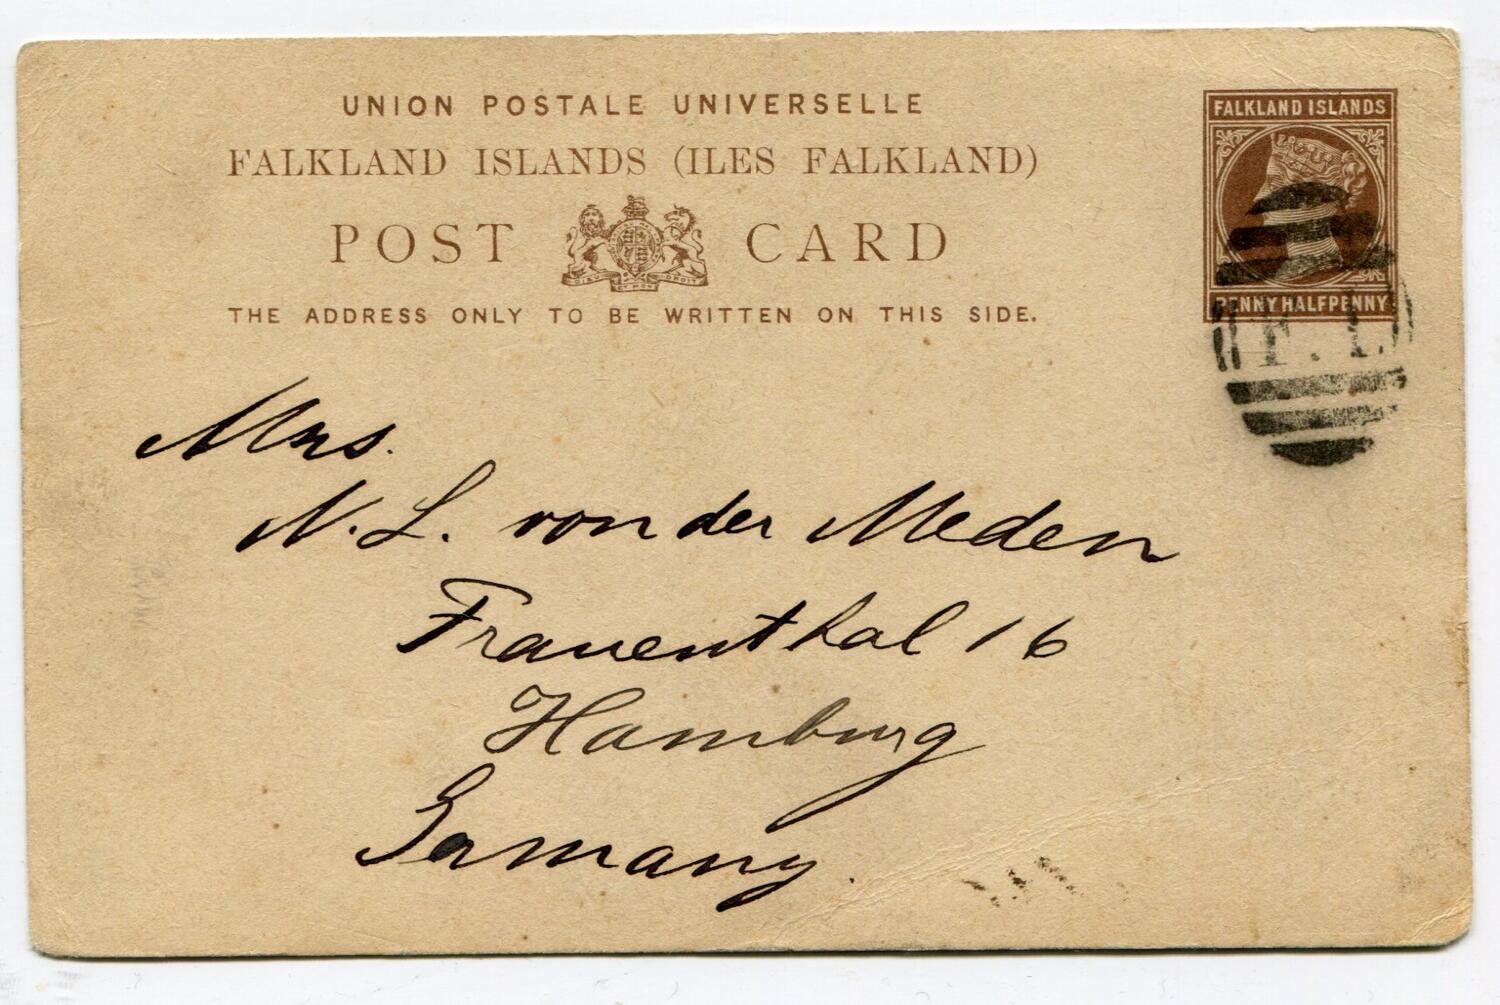 UNION POSTALE UNIVERSELLE
FALKLAND ISLANDS (ILES FALKLAND)
POST CARD
DIEU ET MON DROIT
THE ADDRESS ONLY TO BE WRITTEN ON THIS SIDE.
FALKLAND ISLANDS
PENNY HALFPENNY
F.I.
Mrs.
N. L. von der Meden
Frauenthal 16
Hamburg
Germany.